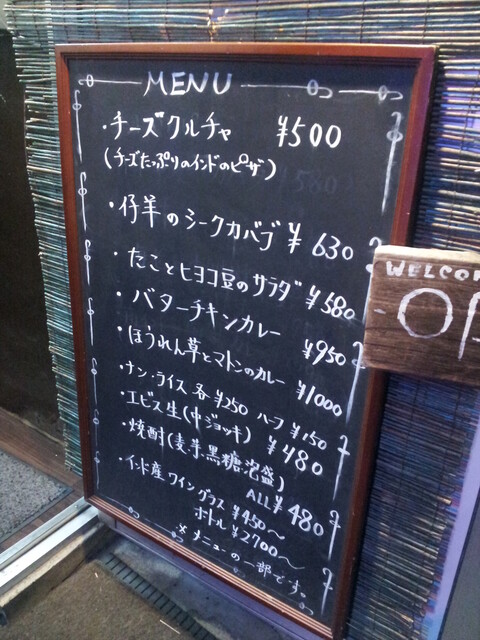 MENU
・チーズクルチャ ¥500
(チーズたっぷりのインドのピザ)
・仔羊のシークカバブ ¥630
・たことヒヨコ豆のサラダ ¥580
・バターチキンカレー ¥950
・ほうれん草とマトンのカレー ¥1000
・ナン・ライス 各¥250 ハーフ ¥150
・エビス生(中ジョッキ) ¥480
・焼酎(麦.芋.黒糖.泡盛)
ALL ¥480
・インド産ワイン グラス ¥450〜
ボトル ¥2700〜
※メニューの一部です。
WELCO